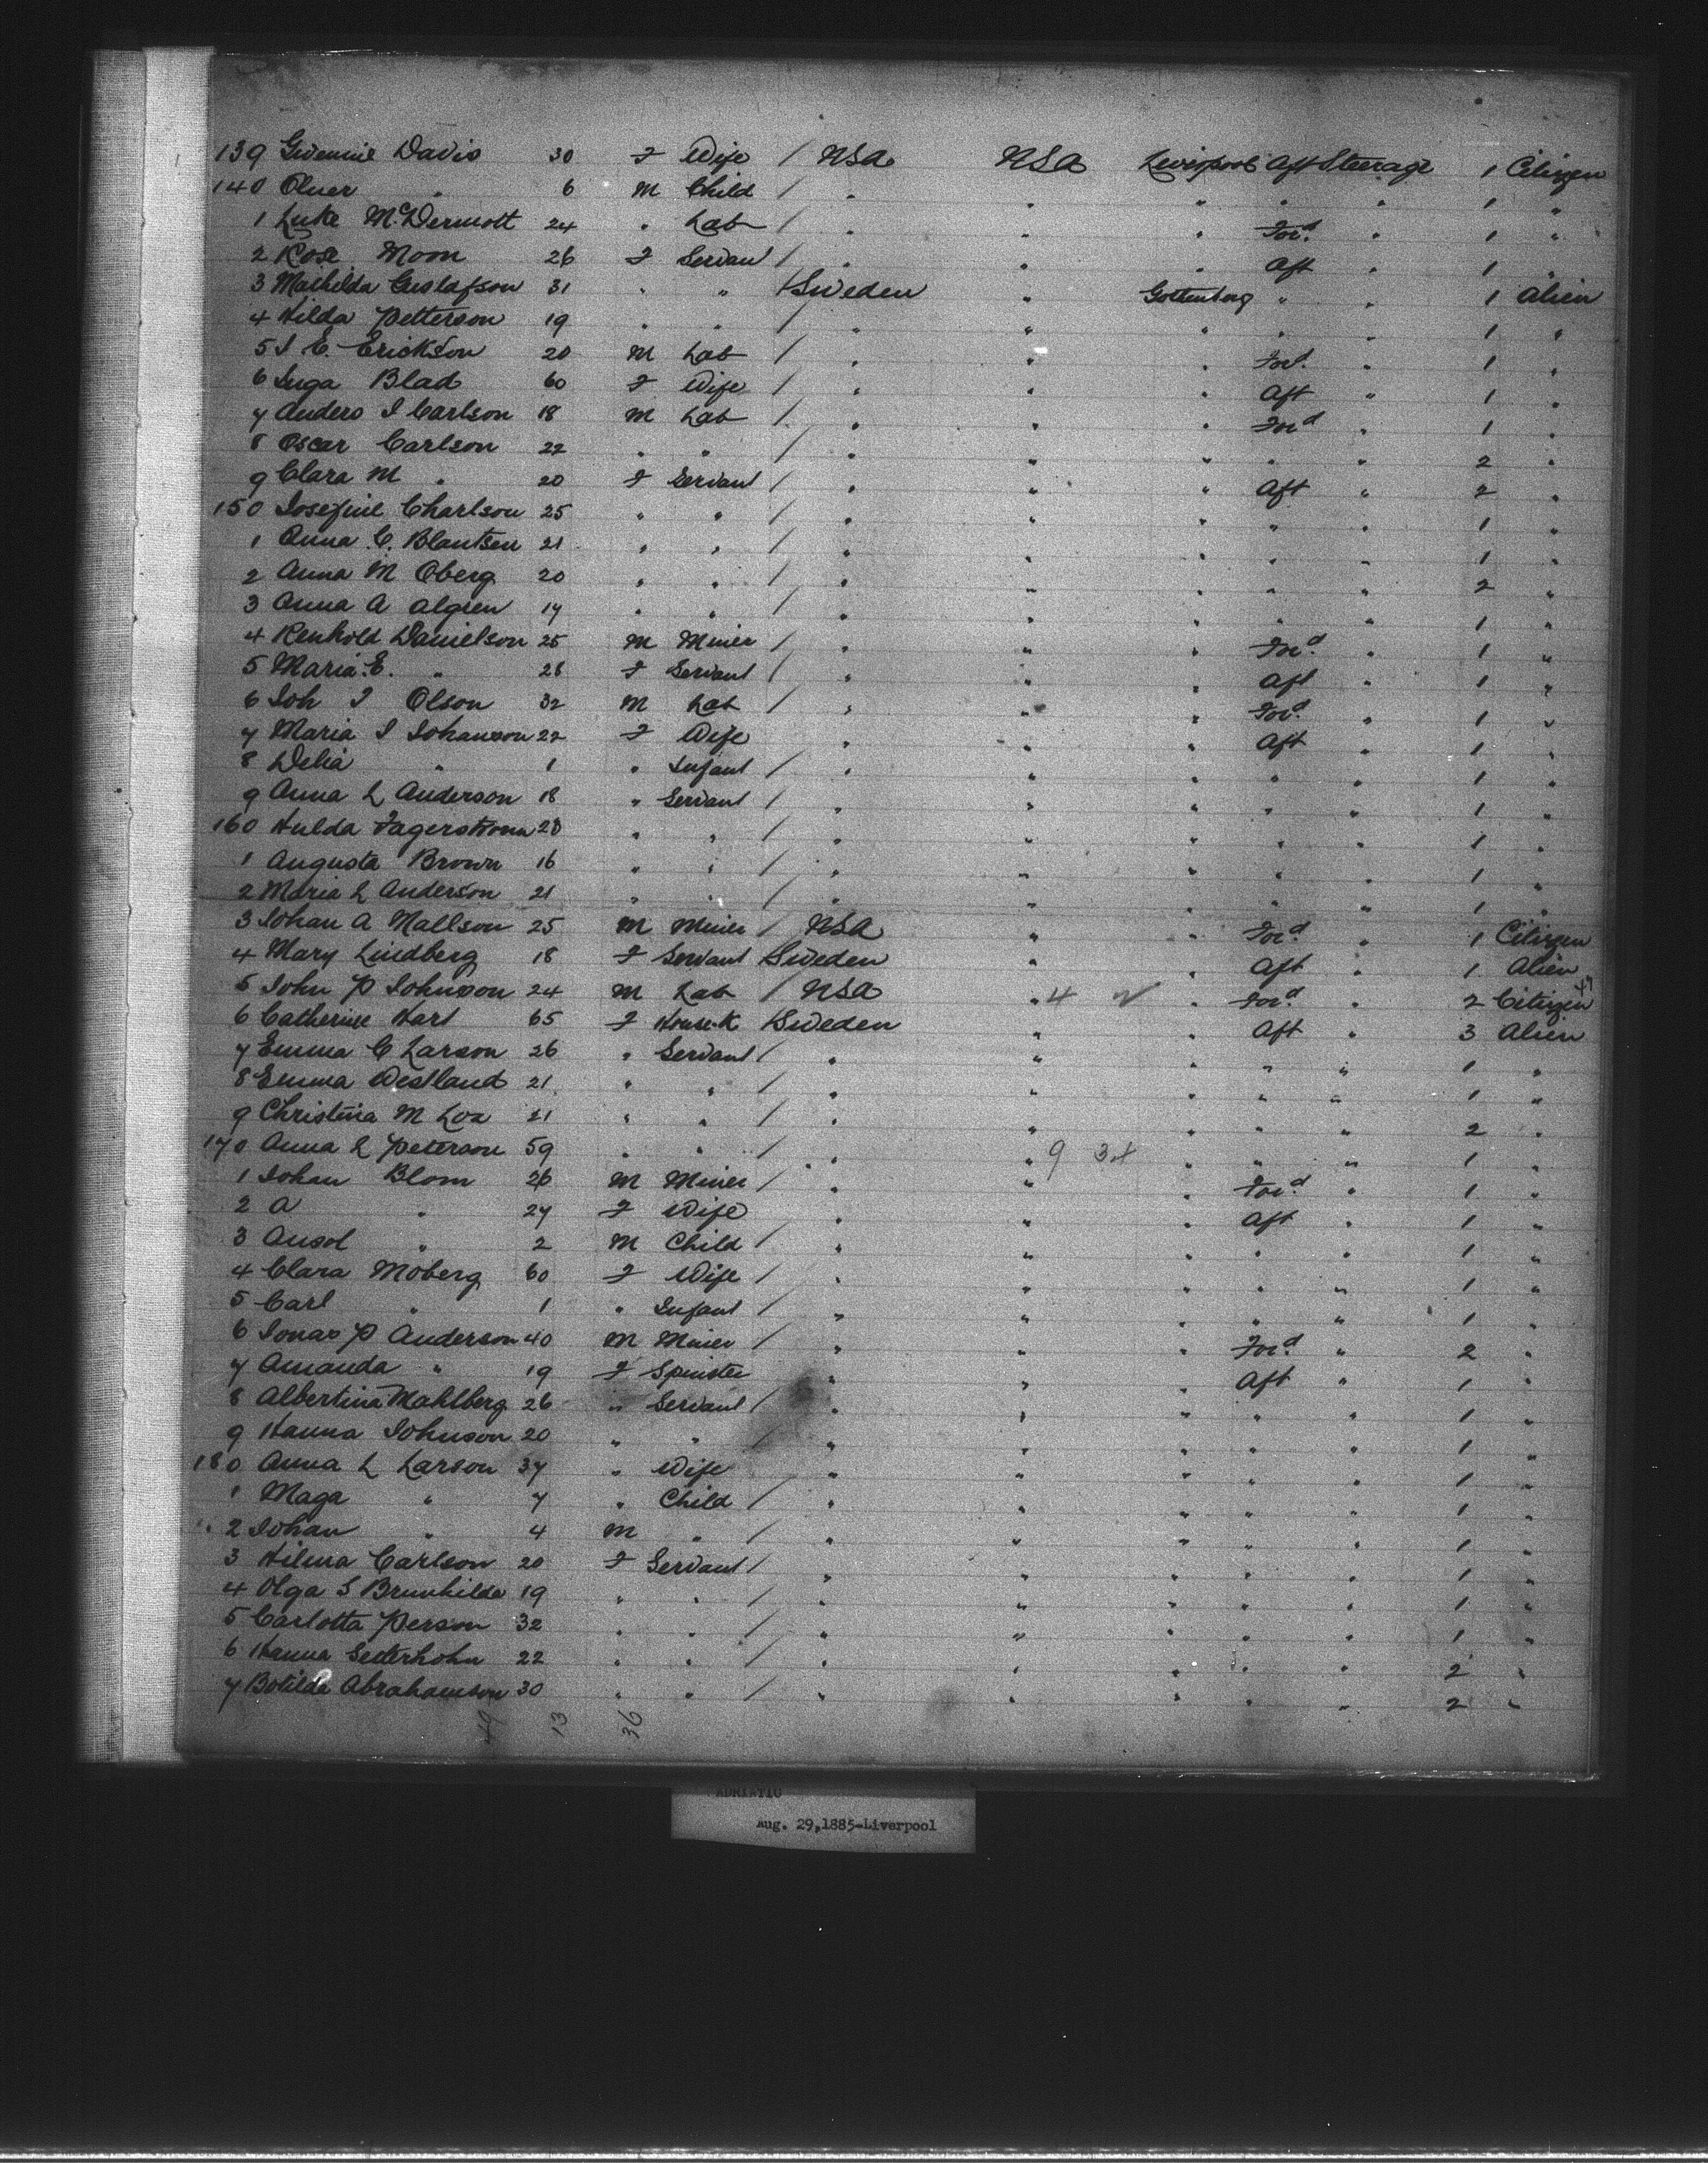 139 Gwennie Davis 30 F Wife / USA USA Liverpool Aft Steerage 1 Citizen
140 Oliver " 6 M Child / " " " " " 1 "
1 Luke McDermott 24 " Lab / " " " For'd " 1 "
2 Rose Moon 26 F Servant / " " " Aft " 1 "
3 Mathilda Gustafson 31 " " / Sweden " Gottenberg " " 1 Alien
4 Hilda Petterson 19 " " / " " " " " 1 "
5 I E. Erickson 20 M Lab / " " " For'd " 1 "
6 Inga Blad 60 F Wife / " " " Aft " 1 "
7 Anders I Carlson 18 M Lab / " " " For'd " 1 "
8 Oscar Carlson 22 " " / " " " " " 2 "
9 Clara M " 20 F Servant / " " " Aft " 2 "
150 Josefine Charlson 25 " " / " " " " " 1 "
1 Anna C. Blantsen 21 " " / " " " " " 1 "
2 Anna M Oberg 20 " " / " " " " " 2 "
3 Anna A Algren 17 " " / " " " " " 1 "
4 Renhold Danielson 25 M Miner / " " " For'd " 1 "
5 Maria E. " 28 F Servant / " " " Aft " 1 "
6 Joh I Olson 32 M Lab / " " " For'd " 1 "
7 Maria I Johanson 22 F Wife " " " Aft " 1 "
8 Delia " 1 " Infant / " " " " " 1 "
9 Anna L Anderson 18 " Servant / " " " " " 1 "
160 Hulda Fagerstrom 28 " " / " " " " " 1 "
1 Augusta Brown 16 " " / " " " " " 1 "
2 Maria L Anderson 21 " " / " " " " " 1 "
3 Johan A Mallson 25 M Miner / USA " " For'd " 1 Citizen
4 Mary Lindberg 18 F Servant / Sweden " " Aft " 1 Alien
5 John P Johnson 24 M Lab / USA " 4 " For'd " 2 Citizen
6 Catherine Hart 65 F House.K / Sweden " " Aft " 3 Alien
7 Emma C Larson 26 " Servant / " " " " " 1 "
8 Emma Westland 21 " " / " " " " " 1 "
9 Christina M Loa 21 " " / " " " " " 2 "
170 Anna L Peterson 59 " " / " " 9 " " " 1 "
1 Johan Blom 26 M Miner / " " " For'd " 1 "
2 A " 27 F Wife " " " Aft " 1 "
3 Ansol " 2 M Child / " " " " " 1 "
4 Clara Moberg 60 F Wife / " " " " " 1 "
5 Carl " 1 " Infant / " " " " " 1 "
6 Jonas P Anderson 40 M Miner / " " " For'd " 2 "
7 Amanda " 19 F Spinster " " " Aft " 1 "
8 Albertina Mahlberg 26 " Servant / " " " " " 1 "
9 Hanna Johnson 20 " " / " " " " " 1 "
180 Anna L Larson 37 " Wife " " " " " 1 "
1 Maga " 7 " Child / " " " " " 1 "
2 Johan " 4 M " / " " " " " 1 "
3 Hilma Carlson 20 F Servant / " " " " " 1 "
4 Olga S Brunhilde 19 " " / " " " " " 1 "
5 Carlotta Person 32 " " / " " " " " 1 "
6 Hanna Setterhohn 22 " " / " " " " " 2 "
7 Botilda Abrahamson 30 " " / " " " " " 2 "
49 13 36
ADRIATIC
Aug. 29,1885-Liverpool